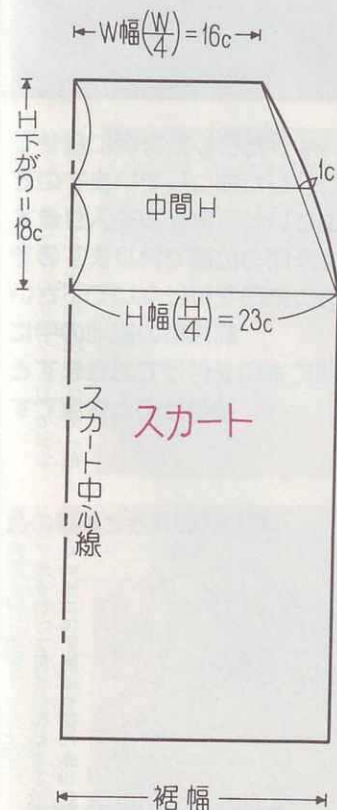 W幅(W/4)=16c
H下がり=18c
1c
中間H
H幅(H/4)=23c
スカート
スカート中心線
裾幅